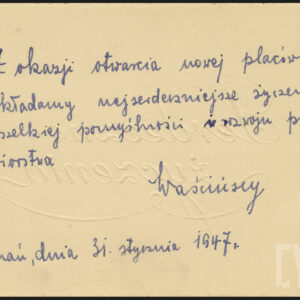 Z okazji otwarcia nowej placów
kładamy najserdeczniejsze życzen
szelkiej pomyślności i rozwoju p
biorstwa
Waścińscy
nań, dnia 31. stycznia 1947 r.